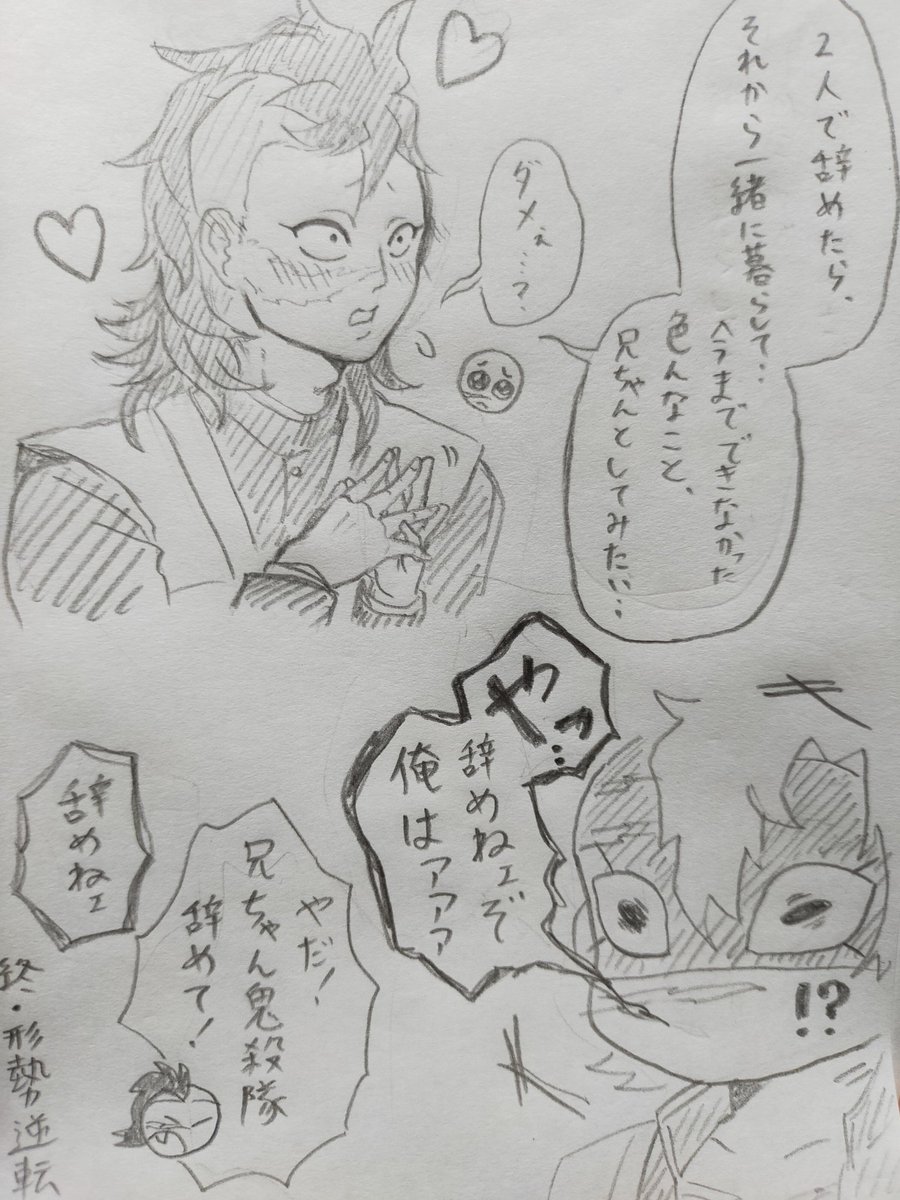 2人で辞めたら、
それから一緒に暮らして‥
今までできなかった
色んなこと、
兄ちゃんとしてみたい‥
ダメェ…?
やっ…
辞めねェぞ
俺はァァァ
!?
やだ!
兄ちゃん鬼殺隊
辞めて!
辞めねェ
終・形勢逆転